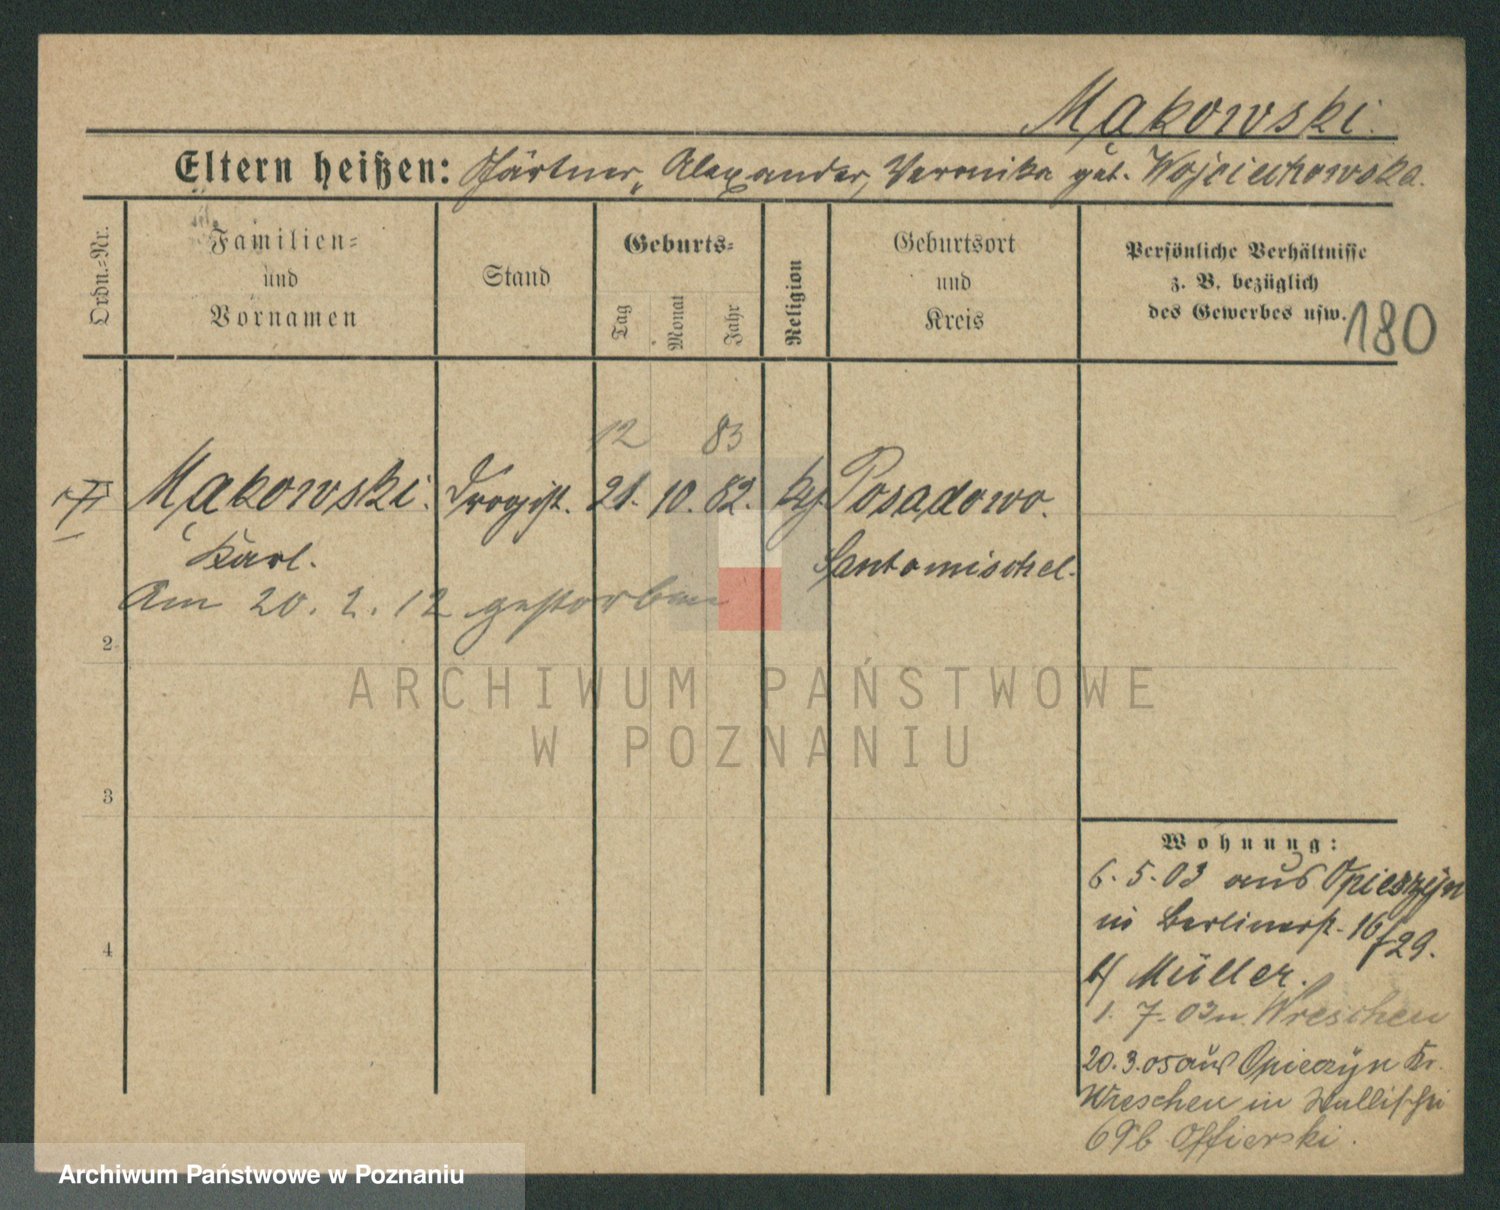 Mąkowski.
Eltern heißen: Gärtner, Alexander, Veronika geb. Wojciechowska.
Ordn.-Nr.
Familien-
und
Vornamen
Stand
Geburts-
Tag
Monat
Jahr
Religion
Geburtsort
und
Kreis
Persönliche Verhältnisse
z. B. bezüglich
des Gewerbes usw.
180
12 83
Mąkowski. Drogist. 21. 10. 82. Posadowo.
Karl. Santomischel.
Am 20. 2. 12 gestorben
2
ARCHIWUM PAŃSTWOWE
W POZNANIU
3
4
Wohnung:
6. 5. 03 aus Opieszyn
in Berlinerst. 16/29.
b/ Müller.
1. 7. 03 n. Wreschen
20. 3. 05 aus Opieszyn Kr.
Wreschen in Wallischei
69b Offierski.
Archiwum Państwowe w Poznaniu